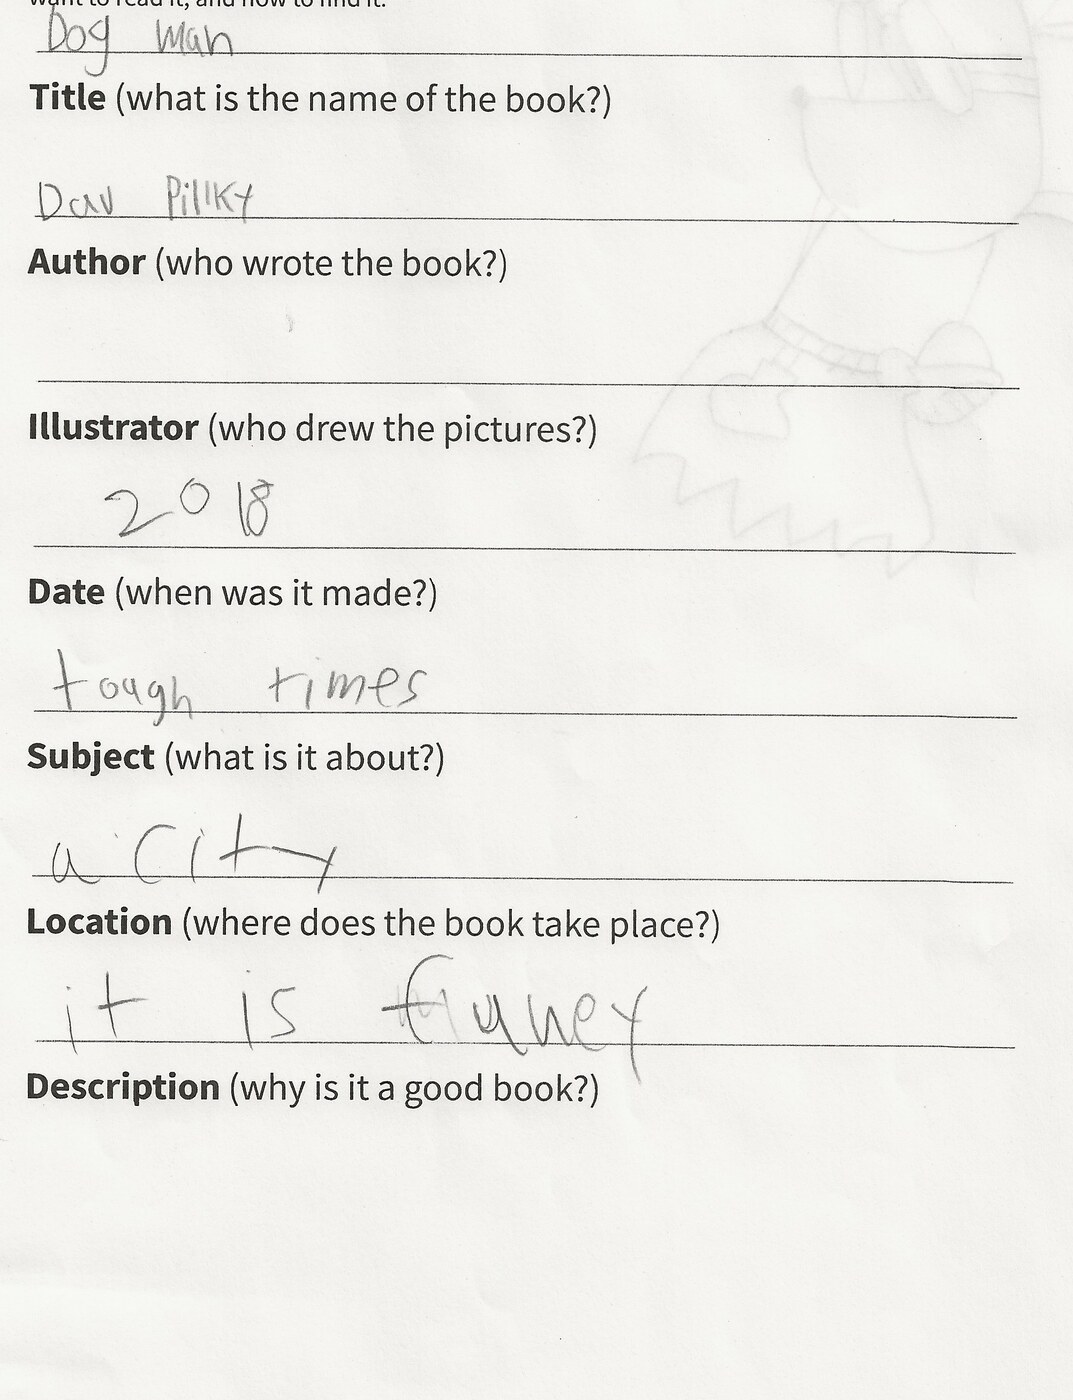 want to read it, and how to find it.
Dog man
Title (what is the name of the book?)
Dav Pillky
Author (who wrote the book?)
Illustrator (who drew the pictures?)
2018
Date (when was it made?)
tough times
Subject (what is it about?)
a city
Location (where does the book take place?)
it is funey
Description (why is it a good book?)